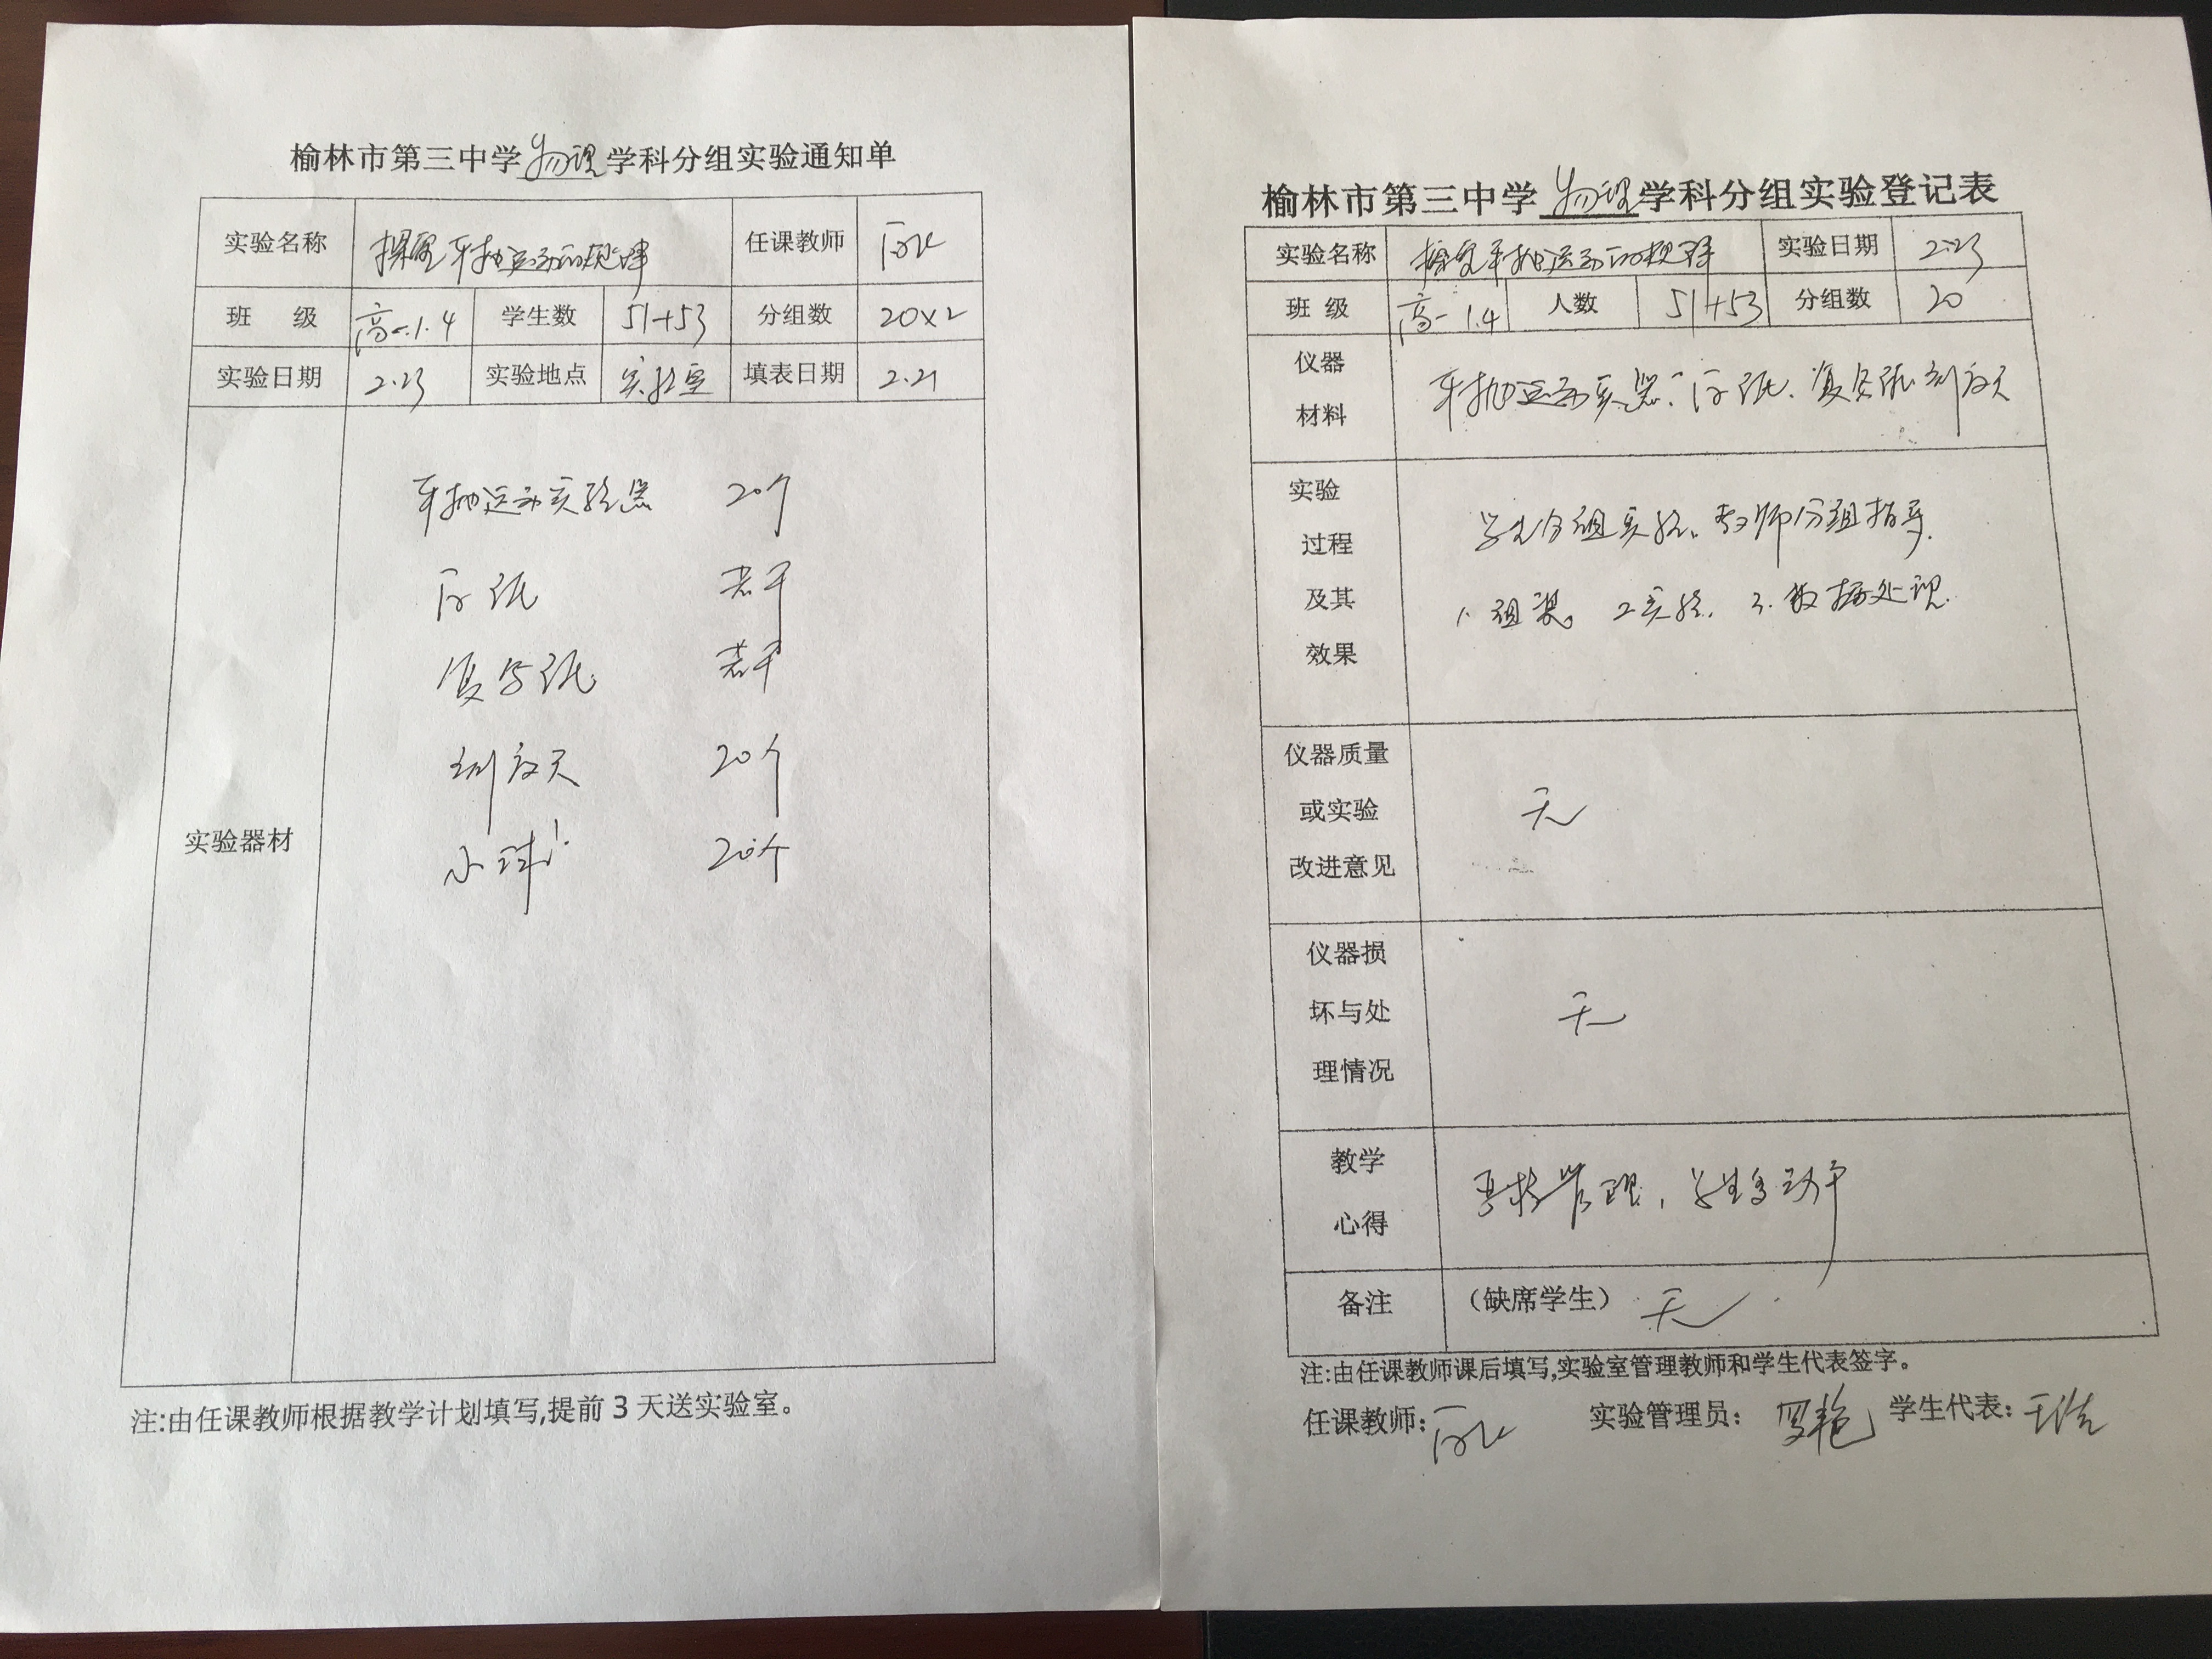 榆林市第三中学物理学科分组实验通知单
实验名称 探究平抛运动的规律 任课教师
班 级 高一.1.4 学生数 51+53 分组数 20×2
实验日期 2.23 实验地点 实验室 填表日期 2.21
实验器材
平抛运动实验器 20个
白纸 若干
复写纸 若干
刻度尺 20个
小球 20个
注:由任课教师根据教学计划填写,提前3天送实验室。
榆林市第三中学物理学科分组实验登记表
实验名称 探究平抛运动的规律 实验日期 2.23
班 级 高一 1.4 人数 51+53 分组数 20
仪器
材料
平抛运动实器、白纸、复写纸、刻度尺
实验
过程
及其
效果
学生分组实验、教师分组指导.
1.组装。 2.实验. 3.数据处理.
仪器质量
或实验
改进意见
无
仪器损
坏与处
理情况
无
教学
心得
严格管理,学生多动手
备注 (缺席学生) 无
注:由任课教师课后填写,实验室管理教师和学生代表签字。
任课教师: 实验管理员: 罗艳 学生代表: